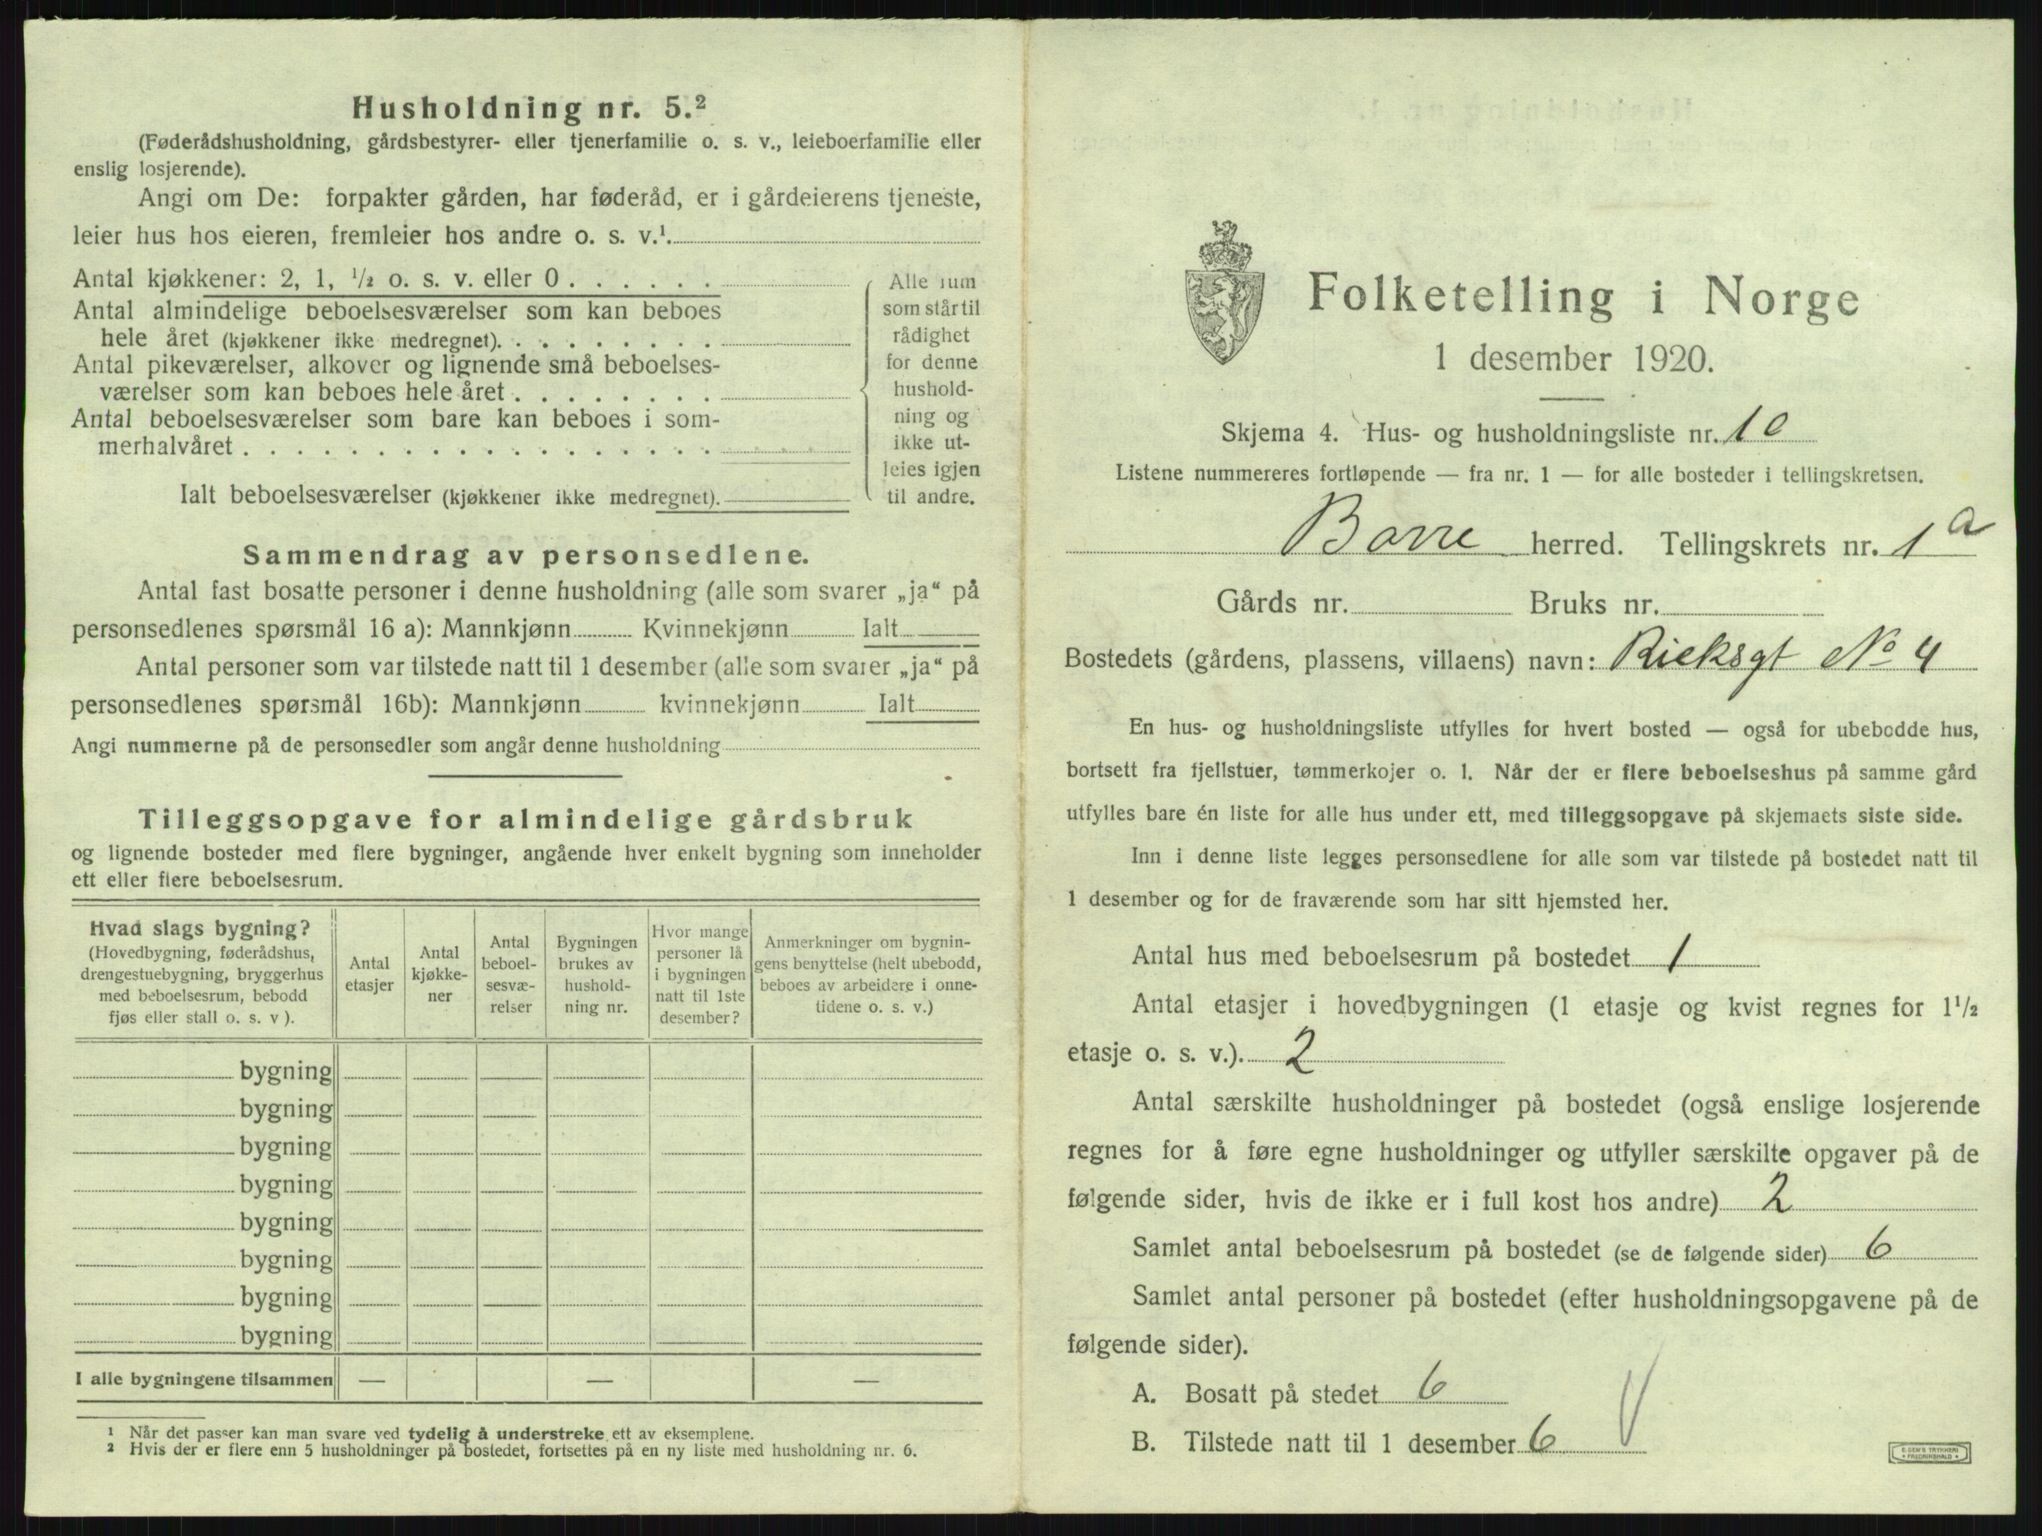 Husholdning nr. 5.²
(Føderådshusholdning, gårdsbestyrer- eller tjenerfamilie o. s. v., leieboerfamilie eller
enslig losjerende).
Angi om De: forpakter gården, har føderåd, er i gårdeierens tjeneste,
leier hus hos eieren, fremleier hos andre o. s. v.¹.
Antal kjøkkener: 2, 1, ½ o. s. v. eller 0 . . . . . .
Antal almindelige beboelsesværelser som kan beboes
hele året (kjøkkener ikke medregnet). . . . . . . . .
Antal pikeværelser, alkover og lignende små beboelses-
værelser som kan beboes hele året . . . . . . . .
Antal beboelsesværelser som bare kan beboes i som-
merhalvåret . . . . . . . . . . . . . . . . . .
Ialt beboelsesværelser (kjøkkener ikke medregnet).
Alle rum
som står til
rådighet
for denne
hushold-
ning og
ikke ut-
leies igjen
til andre.
Sammendrag av personsedlene.
Antal fast bosatte personer i denne husholdning (alle som svarer „ja“ på
personsedlenes spørsmål 16 a): Mannkjønn Kvinnekjønn Ialt
Antal personer som var tilstede natt til 1 desember (alle som svarer „ja“ på
personsedlenes spørsmål 16b): Mannkjønn kvinnekjønn Ialt
Angi nummerne på de personsedler som angår denne husholdning
Tilleggsopgave for almindelige gårdsbruk
og lignende bosteder med flere bygninger, angående hver enkelt bygning som inneholder
ett eller flere beboelsesrum.
Hvad slags bygning?
(Hovedbygning, føderådshus,
drengestuebygning, bryggerhus
med beboelsesrum, bebodd
fjøs eller stall o. s. v ).
Antal
etasjer
Antal
kjøkke-
ner
Antal
beboel-
sesvæ-
relser
Bygningen
brukes av
hushold-
ning nr.
Hvor mange
personer lå
i bygningen
natt til 1ste
desember?
Anmerkninger om bygnin-
gens benyttelse (helt ubebodd,
beboes av arbeidere i onne-
tidene o. s. v.)
bygning
bygning
bygning
bygning
bygning
bygning
bygning
bygning
I alle bygningene tilsammen — — —
¹ Når det passer kan man svare ved tydelig å understreke ett av eksemplene.
² Hvis der er flere enn 5 husholdninger på bostedet, fortsettes på en ny liste med husholdning nr. 6.
Folketelling i Norge
1 desember 1920.
Skjema 4. Hus- og husholdningsliste nr. 10
Listene nummereres fortløpende — fra nr. 1 — for alle bosteder i tellingskretsen.
Borre herred. Tellingskrets nr. 1a
Gårds nr. Bruks nr.
Bostedets (gårdens, plassens, villaens) navn: Rieksgt No 4
En hus- og husholdningsliste utfylles for hvert bosted — også for ubebodde hus,
bortsett fra fjellstuer, tømmerkojer o. l. Når der er flere beboelseshus på samme gård
utfylles bare én liste for alle hus under ett, med tilleggsopgave på skjemaets siste side.
Inn i denne liste legges personsedlene for alle som var tilstede på bostedet natt til
1 desember og for de fraværende som har sitt hjemsted her.
Antal hus med beboelsesrum på bostedet 1
Antal etasjer i hovedbygningen (1 etasje og kvist regnes for 1½
etasje o. s. v.). 2
Antal særskilte husholdninger på bostedet (også enslige losjerende
regnes for å føre egne husholdninger og utfyller særskilte opgaver på de
følgende sider, hvis de ikke er i full kost hos andre) 2
Samlet antal beboelsesrum på bostedet (se de følgende sider) 6
Samlet antal personer på bostedet (efter husholdningsopgavene på de
følgende sider).
A. Bosatt på stedet 6
B. Tilstede natt til 1 desember 6
E. SEM'S TRYKKERI
FREDRIKSHALD